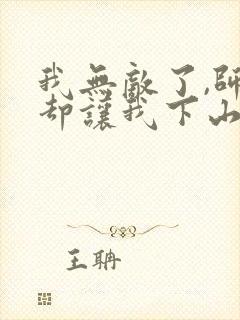 我無敵了,師
却讓我下山
王聃